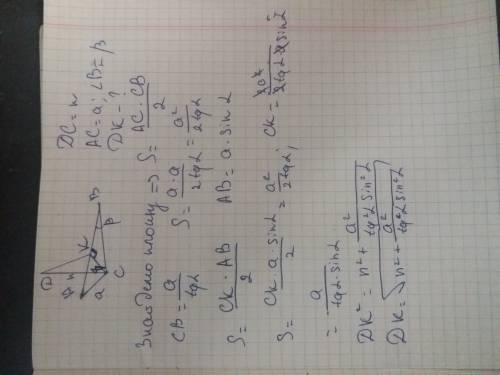 DC = n
AC = a; ∠B = β
DK - ?
Знайдемо площу => S = AC · CB / 2
CB = a / tg α
S = a · a / 2 tg α = a² / 2 tg α
S = CK · AB / 2
AB = a · sin α
S = CK · a · sin α / 2 = a² / 2 tg α;
CK = 2a² / 2 tg α · a sin α
= a / tg α · sin α
DK² = n² + a² / tg² α sin² α
DK = √ n² + a² / tg² α sin² α
D
n
K
B
β
a
C